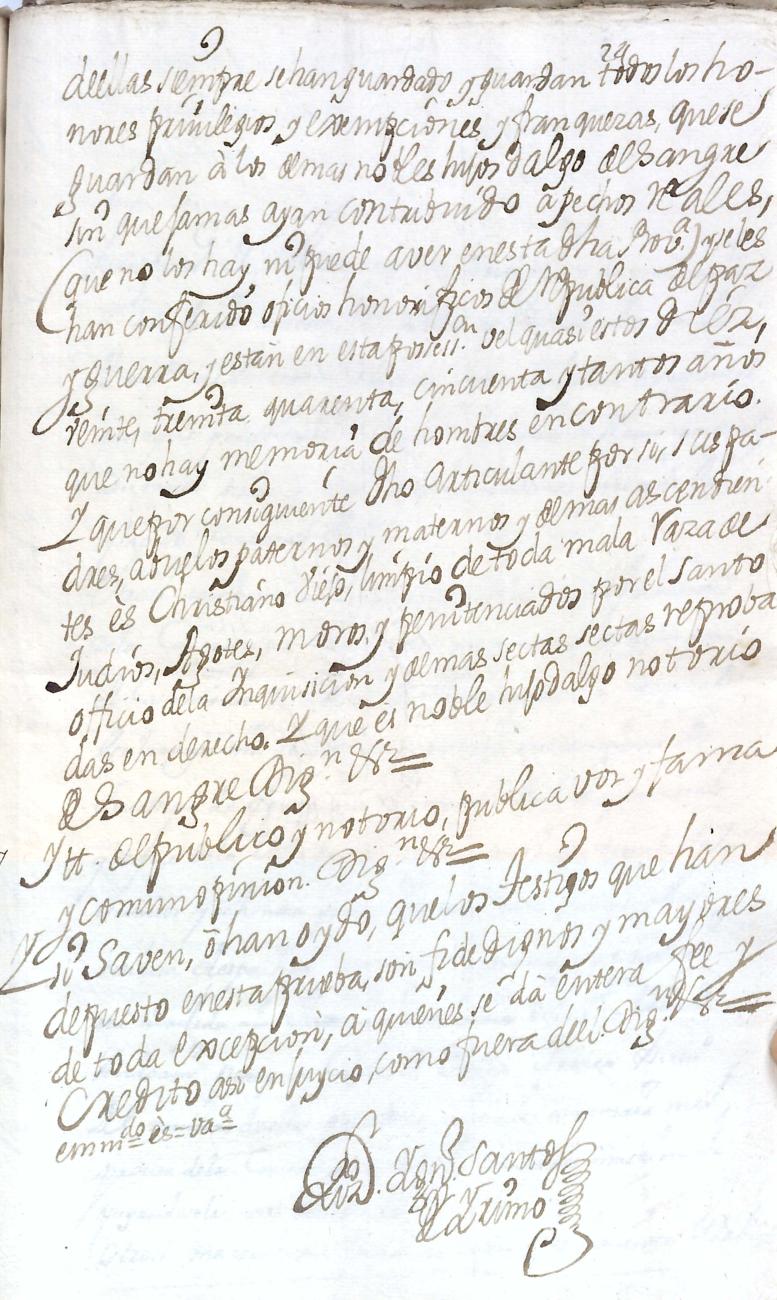 deellas siempre sehanguardado y guardan todos los ho-
nores priuilegios y exempciones y franquezas, que se
guardan à los demas nobles hijos dalgo de Sangre
sin que jamas ayan contribuido a pechos Reales,
(que no los hay ni puede aver enesta dha Prov.ª) y se les
han conferido oficios honorificos de Republica de paz
y guerra, y estan en esta posess.on vel quasi estos diez,
veinte, treinta quarenta, cincuenta y tantos años
que no hay memoria de hombres en contrario.
Y que por consiguiente dho Articulante por si, sus pa-
dres, abuelos paternos y maternos y demas ascendien-
tes ès Christiano Viejo, limpio de toda mala Raza de
Judios, Agotes, moros, y penitenciados por el Santo
officio dela Inquisicion y demas sectas sectas reproba
das en derecho. Y que ès noble hijodalgo notorio
de Sangre Dig.n &c.ª =
Ytt. de publico y notorio, publica voz y fama
y comun opinion. Dig.n &c.ª =
Y si Saven, ò han oydo, que los Testigos que han
depuesto enesta prueba, son fidedignos y mayores
de toda excepcion, à quienes se dà entera fee y
Credito asi en juycio, como fuera deel. Dig.n &c.ª =
emm.do ès = va.ª =
Santos